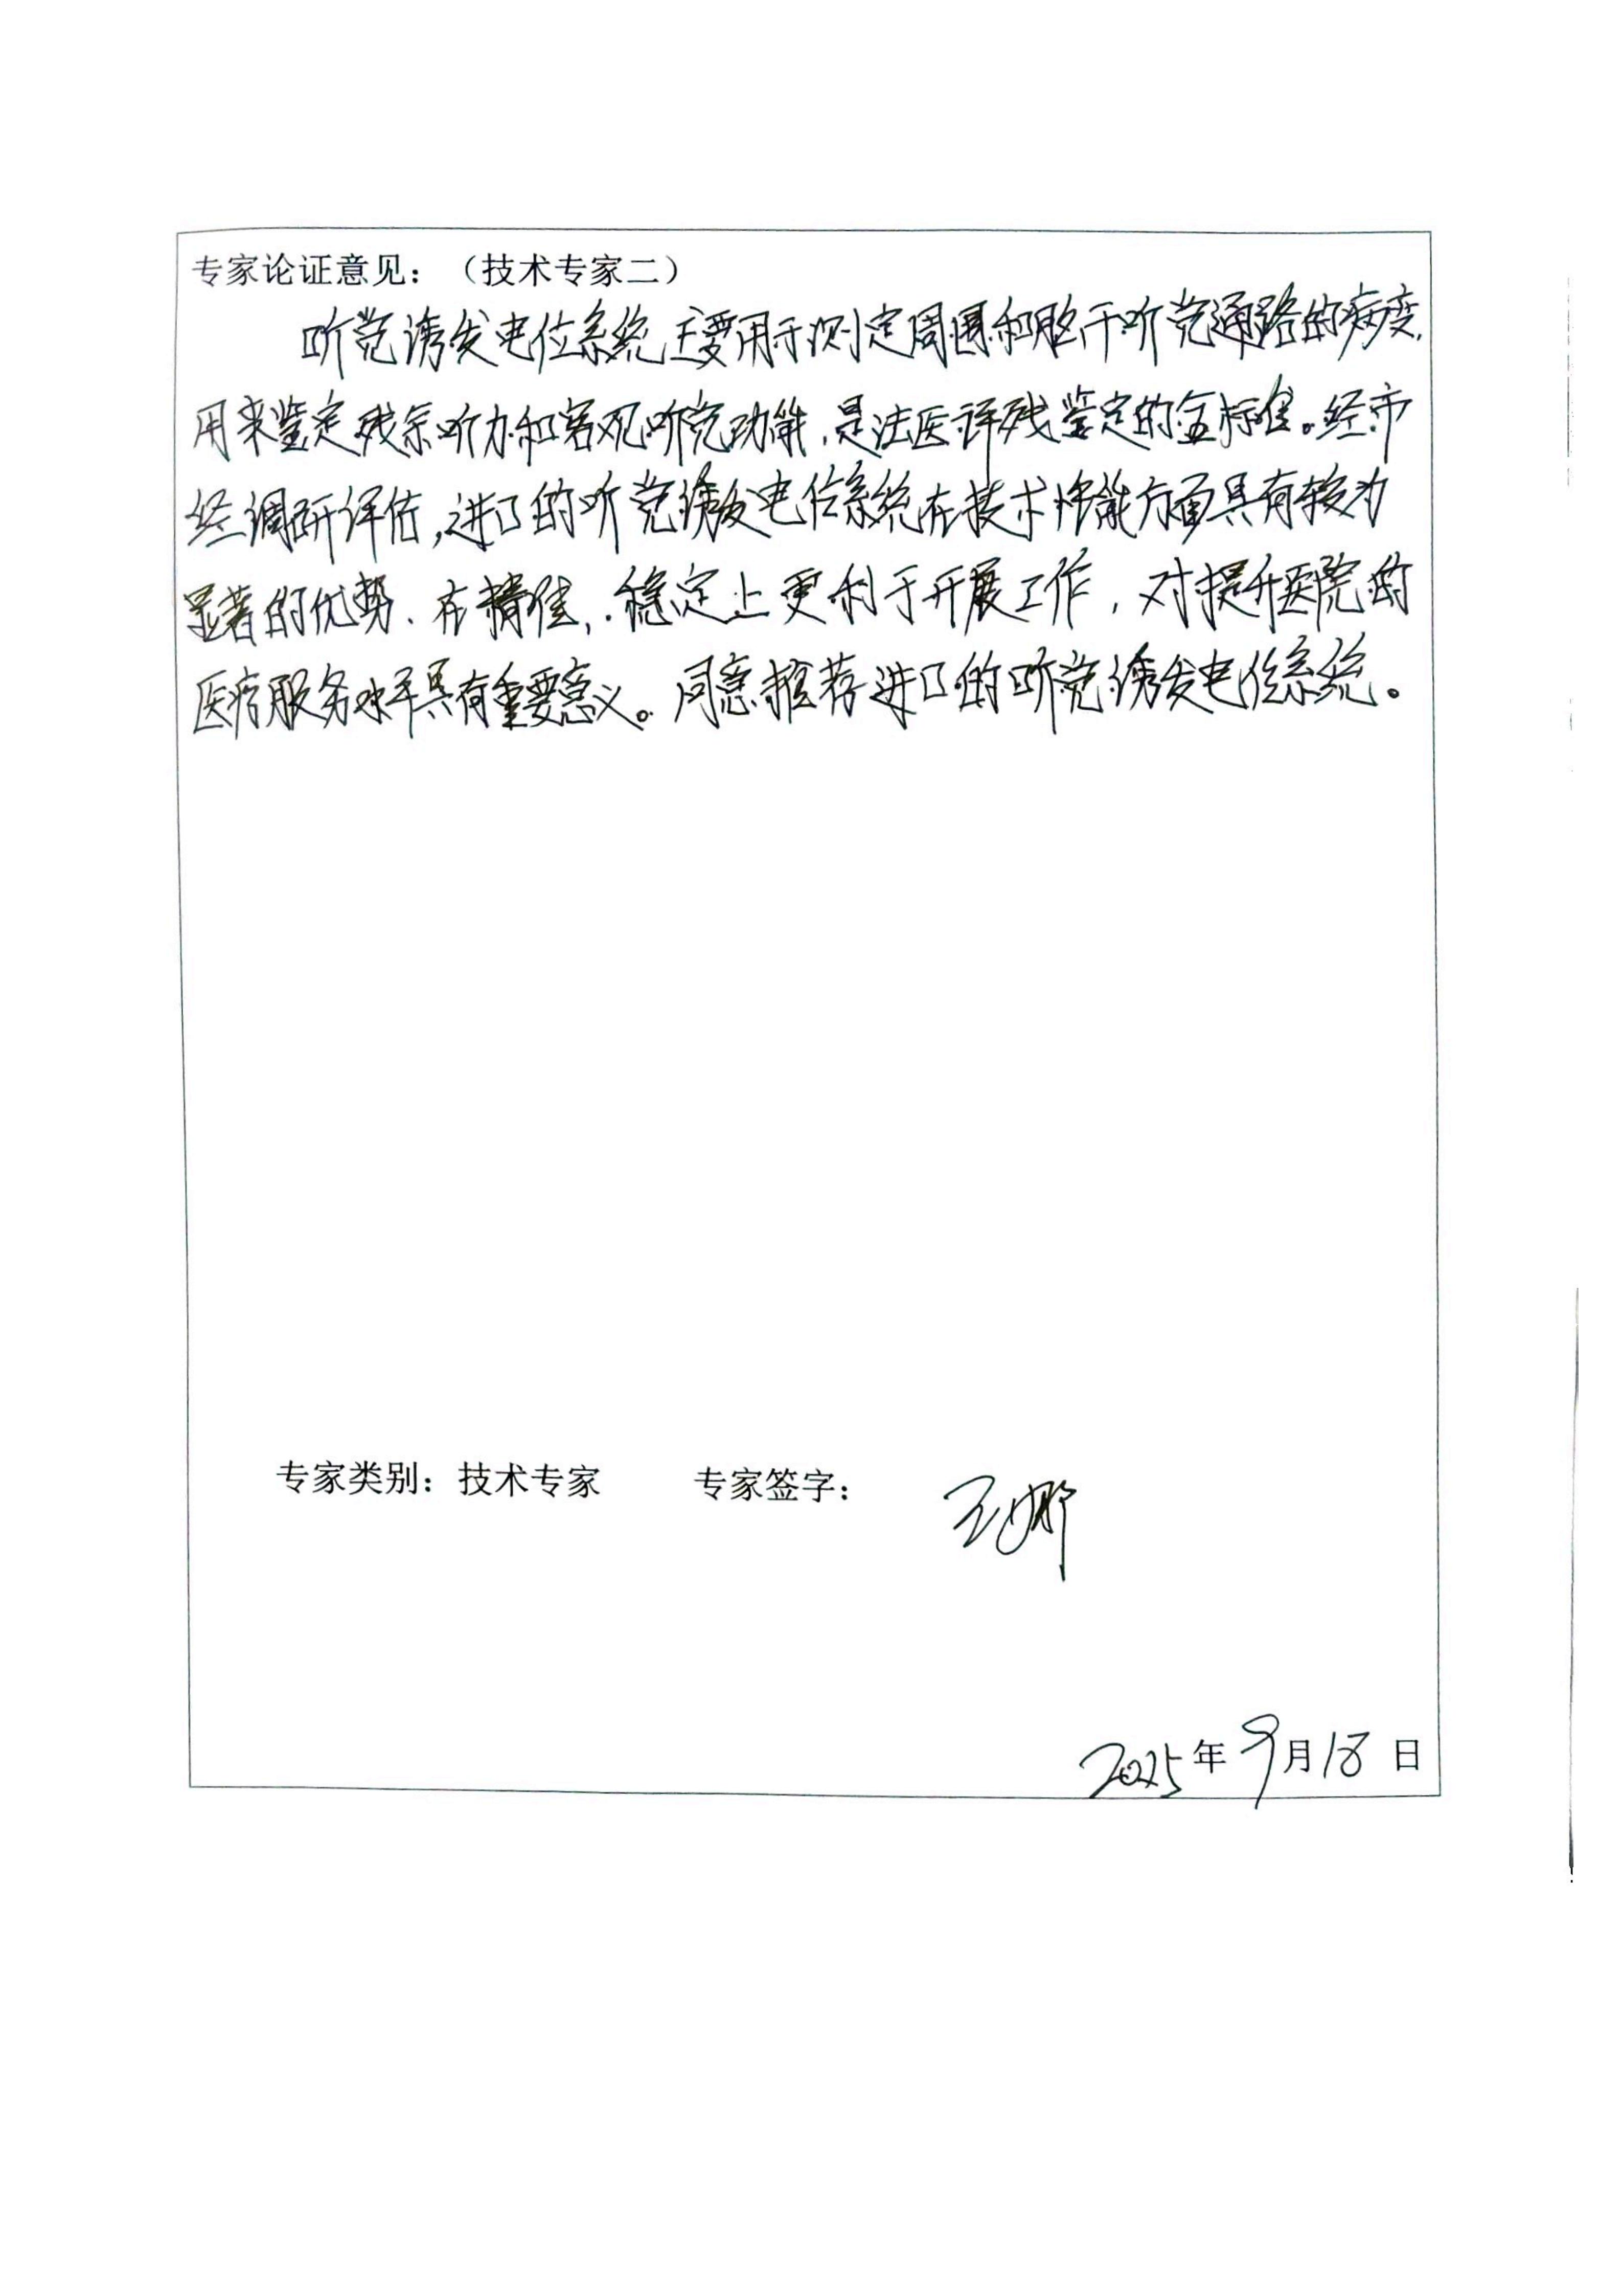 专家论证意见：（技术专家二）
听觉诱发电位系统主要用于测定周围和脑干听觉通路的病变，
用来鉴定残余听力和客观听觉功能，是法医评残鉴定的金标准。经市
经调研评估，进口的听觉诱发电位系统在技术性能方面具有较为
显著的优势、在精准，稳定上更利于开展工作，对提升医院的
医疗服务水平具有重要意义。同意推荐进口的听觉诱发电位系统。
专家类别：技术专家 专家签字：王娜
2025年9月18日